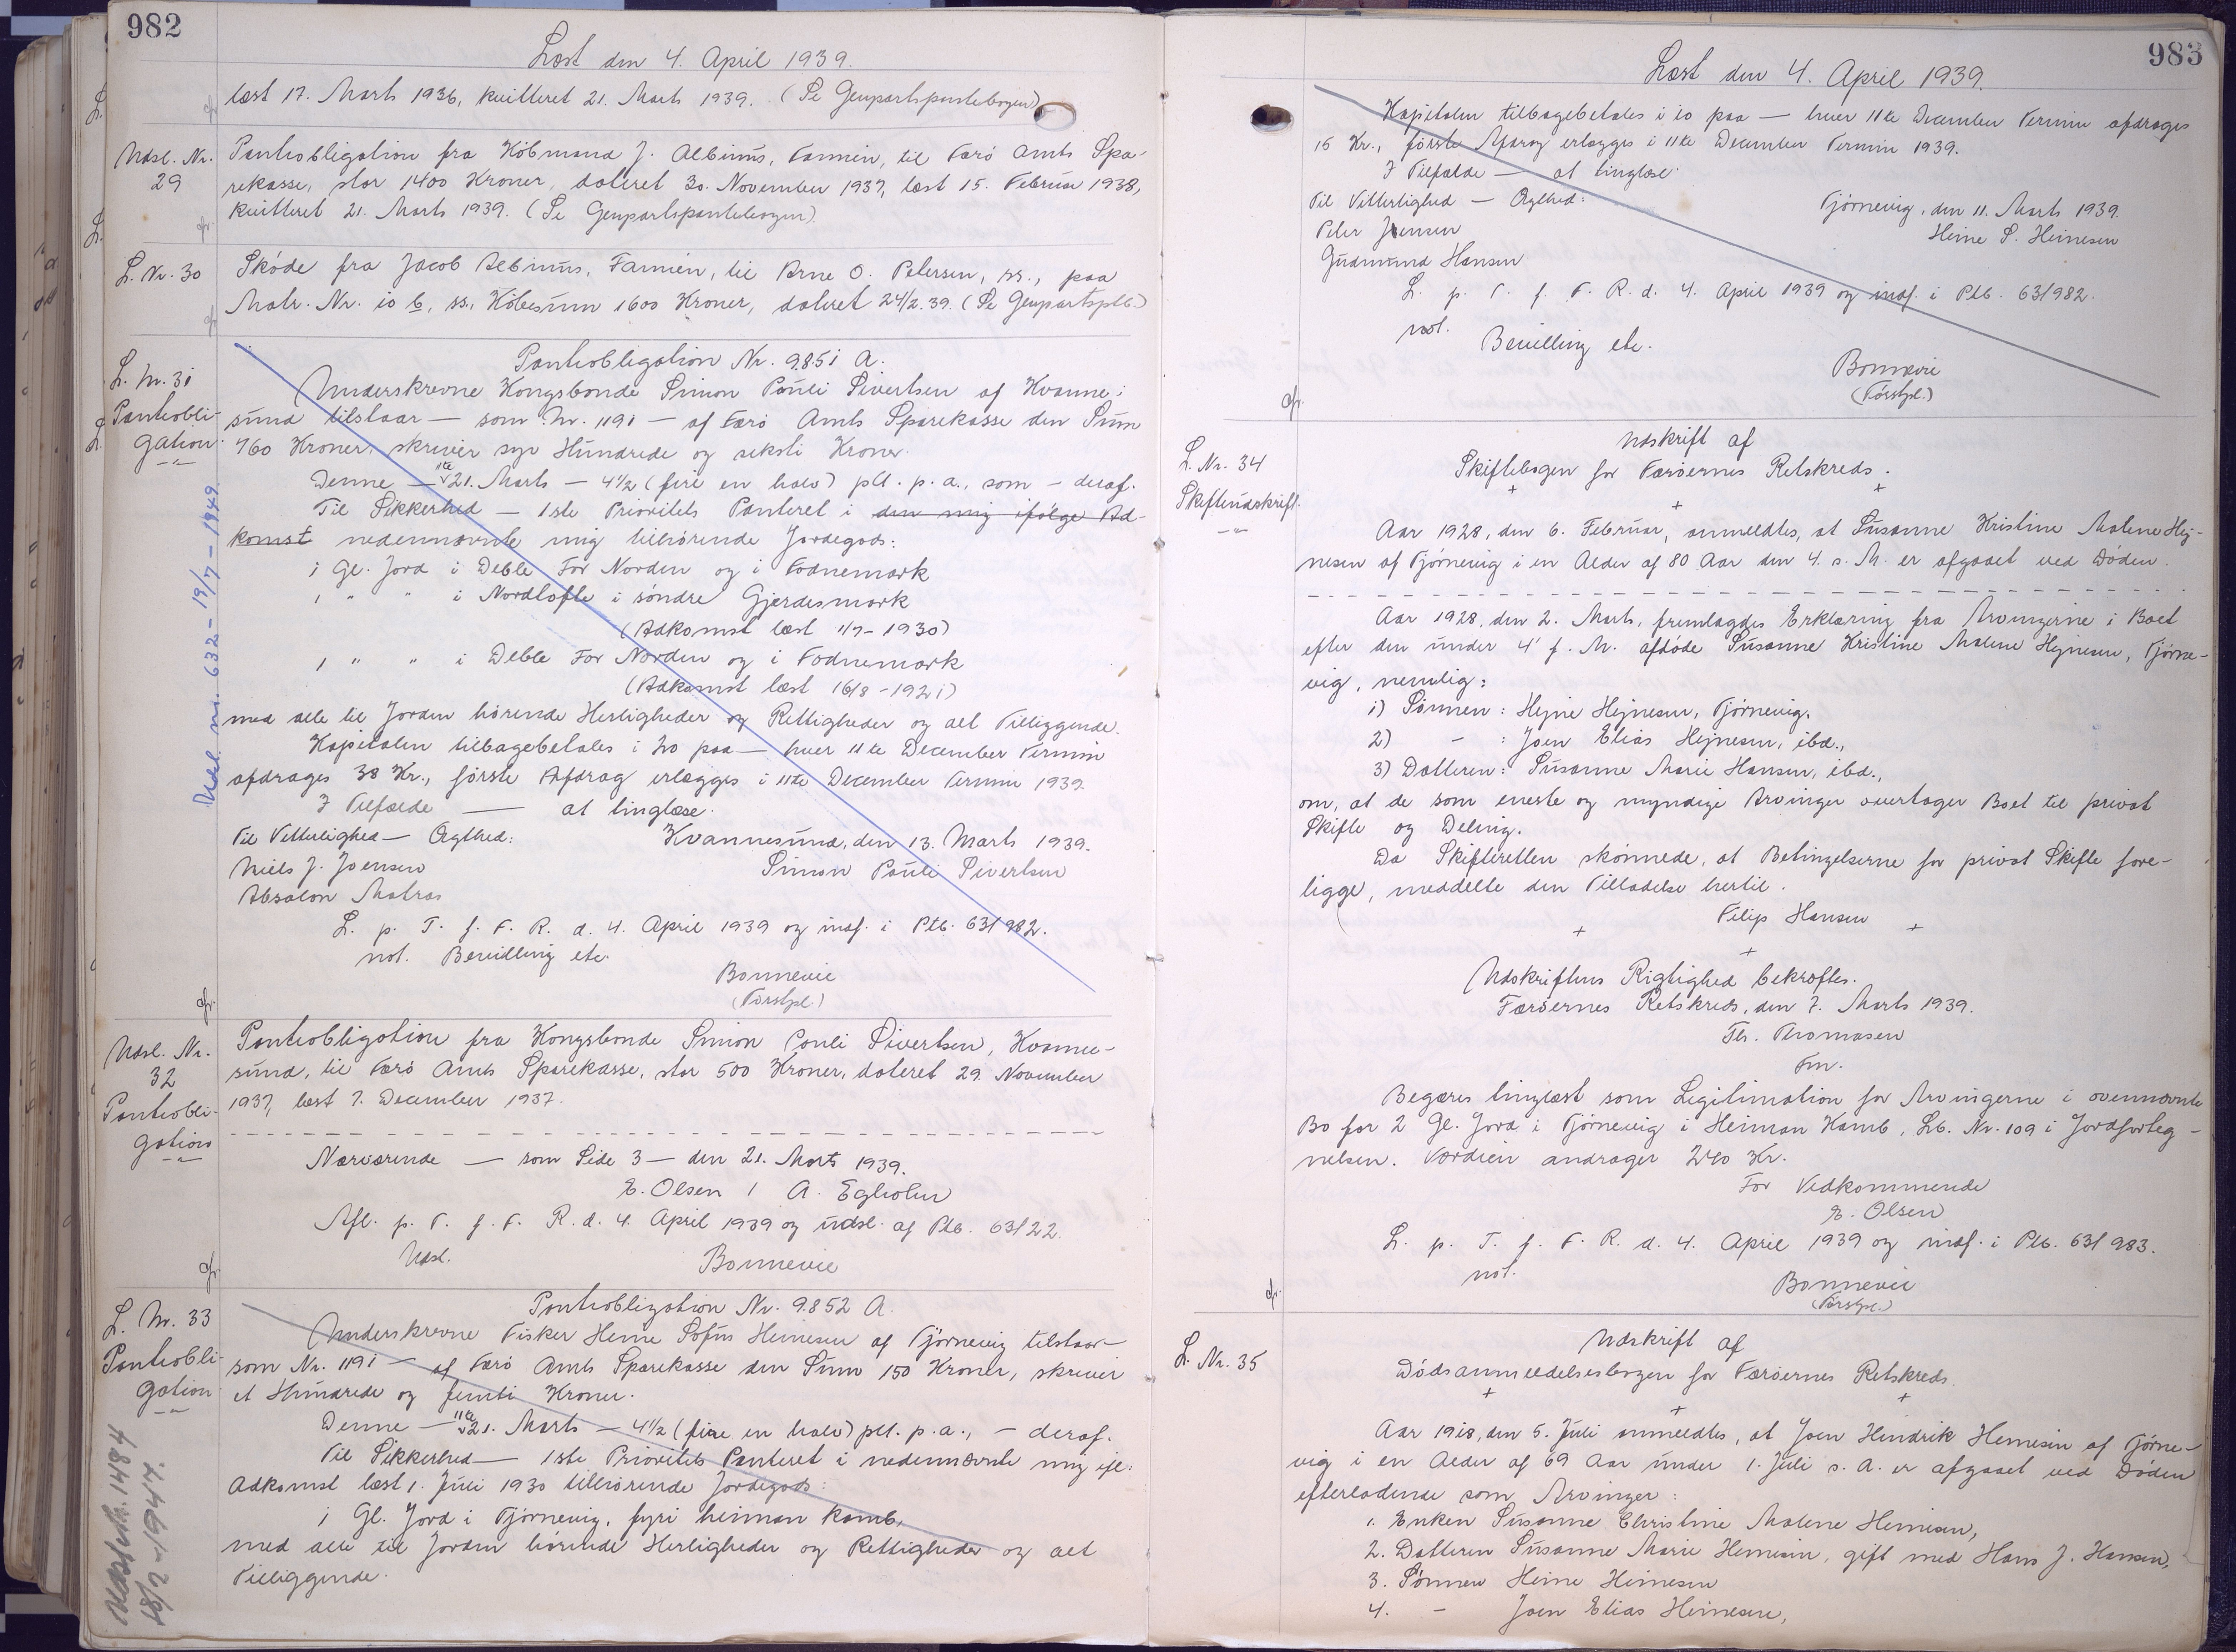 982
Læst den 4. April 1939.
læst 17. Marts 1936, kvitteret 21. Marts 1939. (Se Genpartspantebogen)
Udsl. Nr. 29
Panteobligation fra Købmand J. Albinus, Famien, til Færø Amts Spa-
rekasse, stor 1400 Kroner, dateret 30. November 1937, læst 15. Februar 1938,
kvitteret 21. Marts 1939. (Se Genpartspantebogen)
L. Nr. 30
Skøde fra Jacob Albinus, Famien, til Arne O. Petersen, ss., paa
Matr. Nr. 10 b, ss., Købesum 1600 Kroner, dateret 24/2.39. (Se Genpartsptb.)
L. Nr. 31
Panteobli-
gation
Panteobligation Nr. 9851 A.
Underskrevne Kongsbonde Simon Pauli Sivertsen af Kvanne-
sund tilstaar — som Nr. 1191 — af Færø Amts Sparekasse den Sum
760 Kroner, skriver syv Hundrede og seksti Kroner.
Denne — 11te 21. Marts — 4 1/2 (fire en halv) pCt. p. a., som — deraf.
Til Sikkerhed — 1ste Prioritets Panteret i den mig ifølge Ad-
komst nedennævnte mig tilhørende Jordegods:
1 Gl. Jord i Deble For Norden og i Fodnemark
1 " " i Nordtofte i søndre Gjerdesmark
(Adkomst læst 1/7 - 1930)
1 " " i Deble For Norden og i Fodnemark
(Adkomst læst 16/8 - 1921)
med alle til Jorden hørende Herligheder og Rettigheder og alt Tilliggende.
Kapitalen tilbagebetales i 20 paa — hver 11te December Termin
afdrages 38 Kr., første Afdrag erlægges i 11te December Termin 1939.
I Tilfælde — at tinglæse.
Til Vitterlighed — Ægthed:
Kvannesund, den 13. Marts 1939.
Niels J. Joensen
Simon Pauli Sivertsen
Absalon Matras
L. p. T. f. F. R. d. 4. April 1939 og indf. i Ptb. 63/982.
not. Bevilling etc.
Bonnevie
(Forstpl.)
Udsl. nr. 632 - 19/7 - 1949
Udsl. Nr.
32
Panteobli-
gation
Panteobligation fra Kongsbonde Simon Pauli Sivertsen, Kvanne-
sund, til Færø Amts Sparekasse, stor 500 Kroner, dateret 29. November
1937, læst 7. December 1937.
Nærværende — som Side 3 — den 21. Marts 1939.
E. Olsen / A. Egholm
Afl. p. T. f. F. R. d. 4. April 1939 og udsl. af Ptb. 63/22.
Udsl.
Bonnevie
L. Nr. 33
Panteobli-
gation
Panteobligation Nr. 9852 A.
Underskrevne Fisker Heine Sofus Heinesen af Tjørnevig tilstaar —
som Nr. 1191 — af Færø Amts Sparekasse den Sum 150 Kroner, skriver
et Hundrede og femti Kroner.
Denne — 11te 21. Marts — 4 1/2 (fire en halv) pCt. p. a., — deraf.
Til Sikkerhed — 1ste Prioritets Panteret i nedennævnte mig ifl.
Adkomst læst 1. Juli 1930 tilhørende Jordegods:
1 Gl. Jord i Tjørnevig, fyri heiman kamb,
med alle til Jorden hørende Herligheder og Rettigheder og alt
Tilliggende.
1484
18/2 - 1947.
983
Læst den 4. April 1939.
Kapitalen tilbagebetales i 10 paa — hver 11te December Termin afdrages
15 Kr., første Afdrag erlægges i 11te December Termin 1939.
I Tilfælde — at tinglæse.
Til Vitterlighed — Ægthed:
Tjørnevig, den 11. Marts 1939.
Peter Joensen
Heine S. Heinesen
Gudmund Hansen
L. p. T. f. F. R. d. 4. April 1939 og indf. i Ptb. 63/982.
not.
Bevilling etc.
Bonnevie
(Forstpl.)
L. Nr. 34
Skifteudskrift
Udskrift af
Skiftebogen for Færøernes Retskreds.
+ + +
Aar 1928, den 6. Februar, anmeldtes, at Susanne Kristine Malene Hej-
nesen af Tjørnevig i en Alder af 80 Aar den 4. s. M. er afgaaet ved Døden.
Aar 1928, den 2. Marts, fremlagdes Erklæring fra Arvingerne i Boet
efter den under 4' f. M. afdøde Susanne Kristine Malene Hejnesen, Tjørne-
vig, nemlig:
1) Sønnen: Hejne Hejnesen, Tjørnevig.
2) - : Joen Elias Hejnesen, ibd.,
3) Datteren: Susanne Marie Hansen, ibd.,
om, at de som eneste og myndige Arvinger overtager Boet til privat
Skifte og Deling.
Da Skifteretten skønnede, at Betingelserne for privat Skifte fore-
ligge, meddelte den Tilladelse hertil.
Filip Hansen
+ + +
Udskriftens Rigtighed bekræftes.
Færøernes Retskreds, den 7. Marts 1939.
Th. Thomasen
Fm.
Begæres tinglæst som Legitimation for Arvingerne i ovennævnte
Bo for 2 Gl. Jord i Tjørnevig i Heiman Kamb, Lb. Nr. 109 i Jordforteg-
nelsen. Værdien andrager 240 Kr.
For Vedkommende
E. Olsen
L. p. T. f. F. R. d. 4. April 1939 og indf. i Ptb. 63/983.
not.
Bonnevie
(Forstpl.)
L. Nr. 35
Udskrift af
Dødsanmeldelsesbogen for Færøernes Retskreds.
+ + +
Aar 1918, den 5. Juli anmeldtes, at Joen Hendrik Heinesen af Tjørne-
vig i en Alder af 69 Aar under 1. Juli s. A. er afgaaet ved Døden
efterladende som Arvinger:
1. Enken Susanne Christine Malene Heinesen,
2. Datteren Susanne Marie Heinesen, gift med Hans J. Hansen,
3. Sønnen Heine Heinesen
4. - Joen Elias Heinesen,